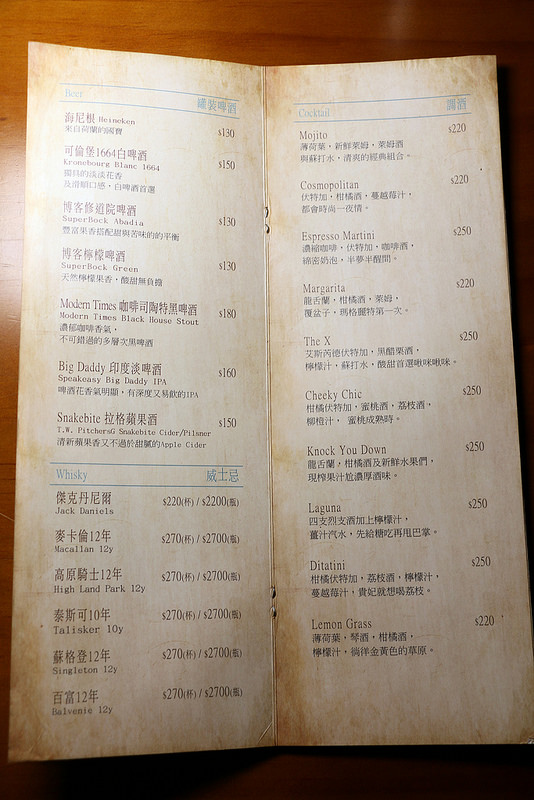 Beer 罐裝啤酒
海尼根 Heineken
來自荷蘭的國寶 $130
可倫堡1664白啤酒
Kronebourg Blanc 1664 $150
獨具的淡淡花香
及滑順口感，白啤酒首選
博客修道院啤酒
SuperBock Abadia $130
豐富果香搭配甜與苦味的的平衡
博客檸檬啤酒
SuperBock Green $130
天然檸檬果香，酸甜無負擔
Modern Times 咖啡司陶特黑啤酒
Modern Times Black House Stout $180
濃郁咖啡香氣，
不可錯過的多層次黑啤酒
Big Daddy 印度淡啤酒
Speakeasy Big Daddy IPA $160
啤酒花香氣明顯，有深度又易飲的IPA
Snakebite 拉格蘋果酒
T.W. PitchersG Snakebite Cider/Pilsner $150
清新蘋果香又不過於甜膩的Apple Cider
Whisky 威士忌
傑克丹尼爾 $220(杯) / $2200(瓶)
Jack Daniels
麥卡倫12年 $270(杯) / $2700(瓶)
Macallan 12y
高原騎士12年 $270(杯) / $2700(瓶)
High Land Park 12y
泰斯可10年 $270(杯) / $2700(瓶)
Talisker 10y
蘇格登12年 $270(杯) / $2700(瓶)
Singleton 12y
百富12年 $270(杯) / $2700(瓶)
Balvenie 12y
Cocktail 調酒
Mojito $220
薄荷葉，新鮮萊姆，萊姆酒
與蘇打水，清爽的經典組合。
Cosmopolitan $220
伏特加，柑橘酒，蔓越莓汁，
都會時尚一夜情。
Espresso Martini $250
濃縮咖啡，伏特加，咖啡酒，
綿密奶泡，半夢半醒間。
Margarita $220
龍舌蘭，柑橘酒，萊姆，
覆盆子，瑪格麗特第一次。
The X $250
艾斯芮德伏特加，黑醋栗酒，
檸檬汁，蘇打水，酸甜首選啾咪啾咪。
Cheeky Chic $250
柑橘伏特加，蜜桃酒，荔枝酒，
柳橙汁， 蜜桃成熟時。
Knock You Down $250
龍舌蘭，柑橘酒及新鮮水果們，
現榨果汁尬濃厚酒味。
Laguna $250
四支烈支酒加上檸檬汁，
薑汁汽水，先給糖吃再甩巴掌。
Ditatini $250
柑橘伏特加，荔枝酒，檸檬汁，
蔓越莓汁，貴妃就想喝荔枝。
Lemon Grass $220
薄荷葉，琴酒，柑橘酒，
檸檬汁，徜徉金黃色的草原。